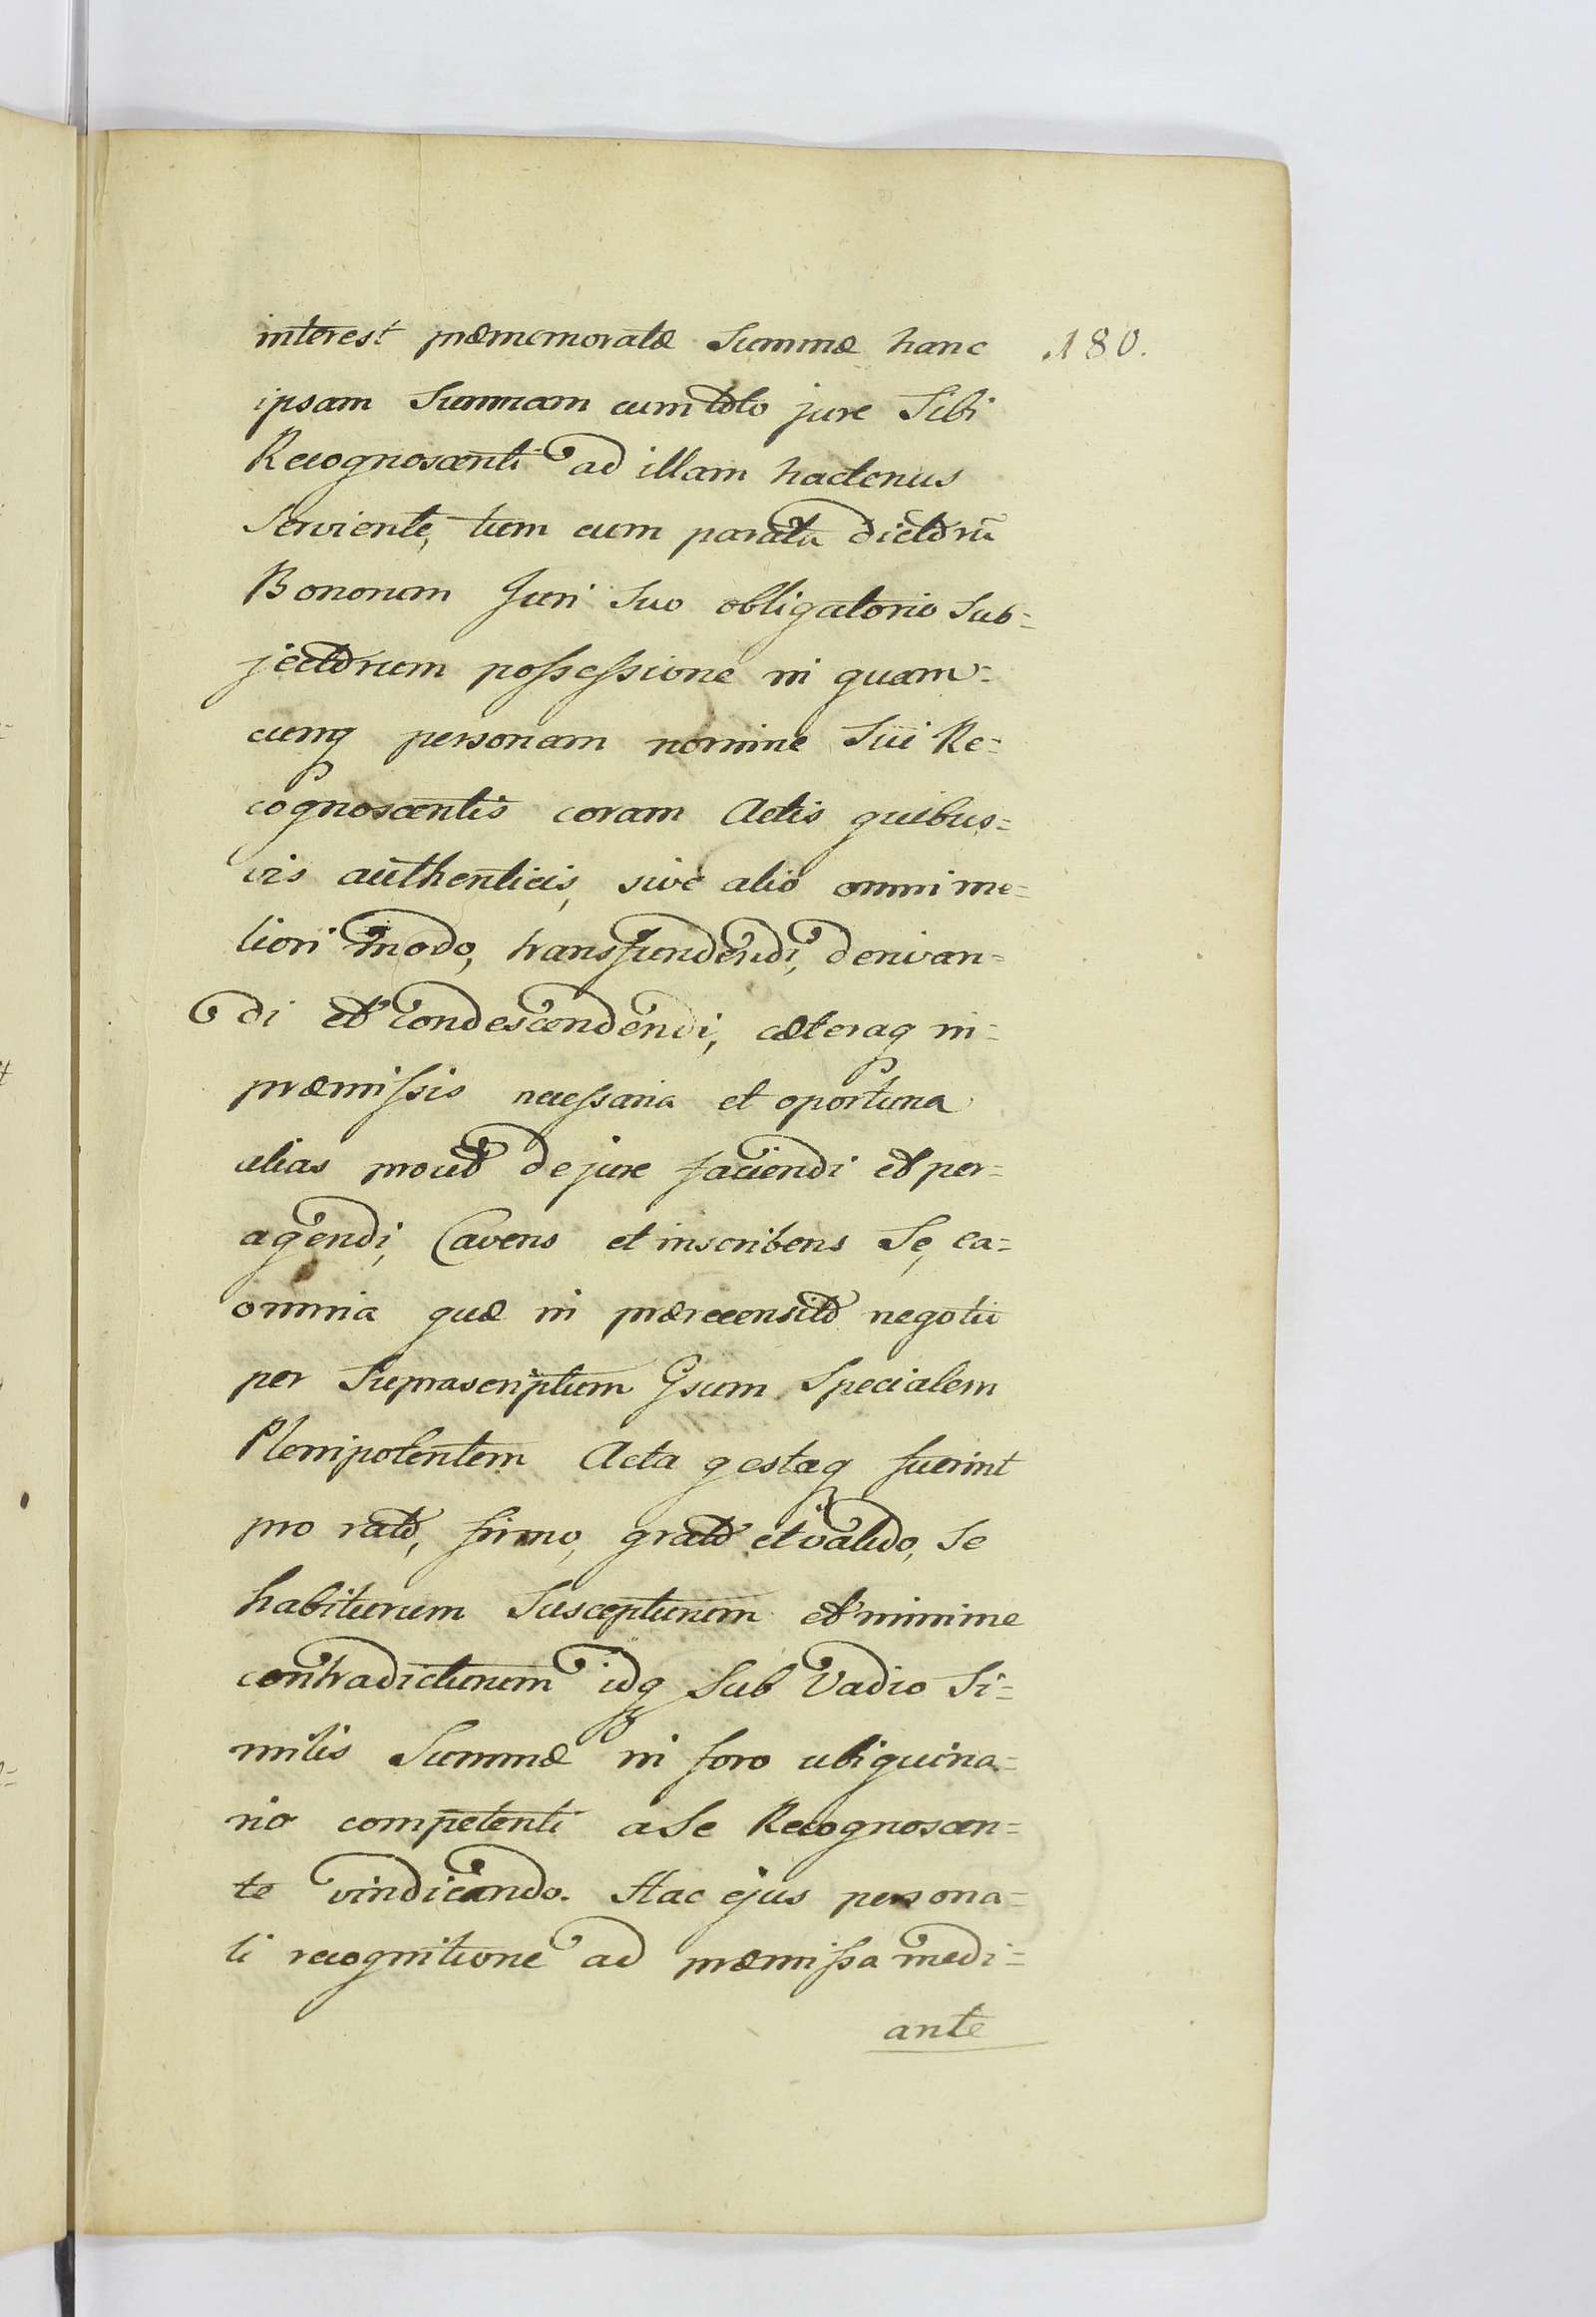 interest præmemoratæ Summæ hanc 180.
ipsam Summam cum toto jure Sibi
Recognoscenti ad illam hactenus
Serviente, tum cum parata dictorū
Bonorum Juri Suo obligatorio Sub=
jectorum possessione in quam=
cunq personam nomine Sui Re=
cognoscentis coram Actis quibus=
vis authenticis, sive alio omni me=
liori modo, transfundendi, derivan=
di et condescendendi, cæteraq in=
præmissis necessaria et oportuna
alias prout de jure faciendi et per=
agendi, Cavens et inscribens Se, ea=
omnia quæ in præreeensito negotii
per Suprascriptum Gsum Specialem
Plenipotentem Acta gestaq fuerint
pro rato, firmo, grato et valido, Se
habiturum Suscepturum et minime
contradicturum idq Sub Vadio Si=
milis Summæ in foro ubiquina=
rio competenti a Se Recognoscen=
te vindicando. Hac ejus persona=
li recognitione ad præmissa medi=
ante